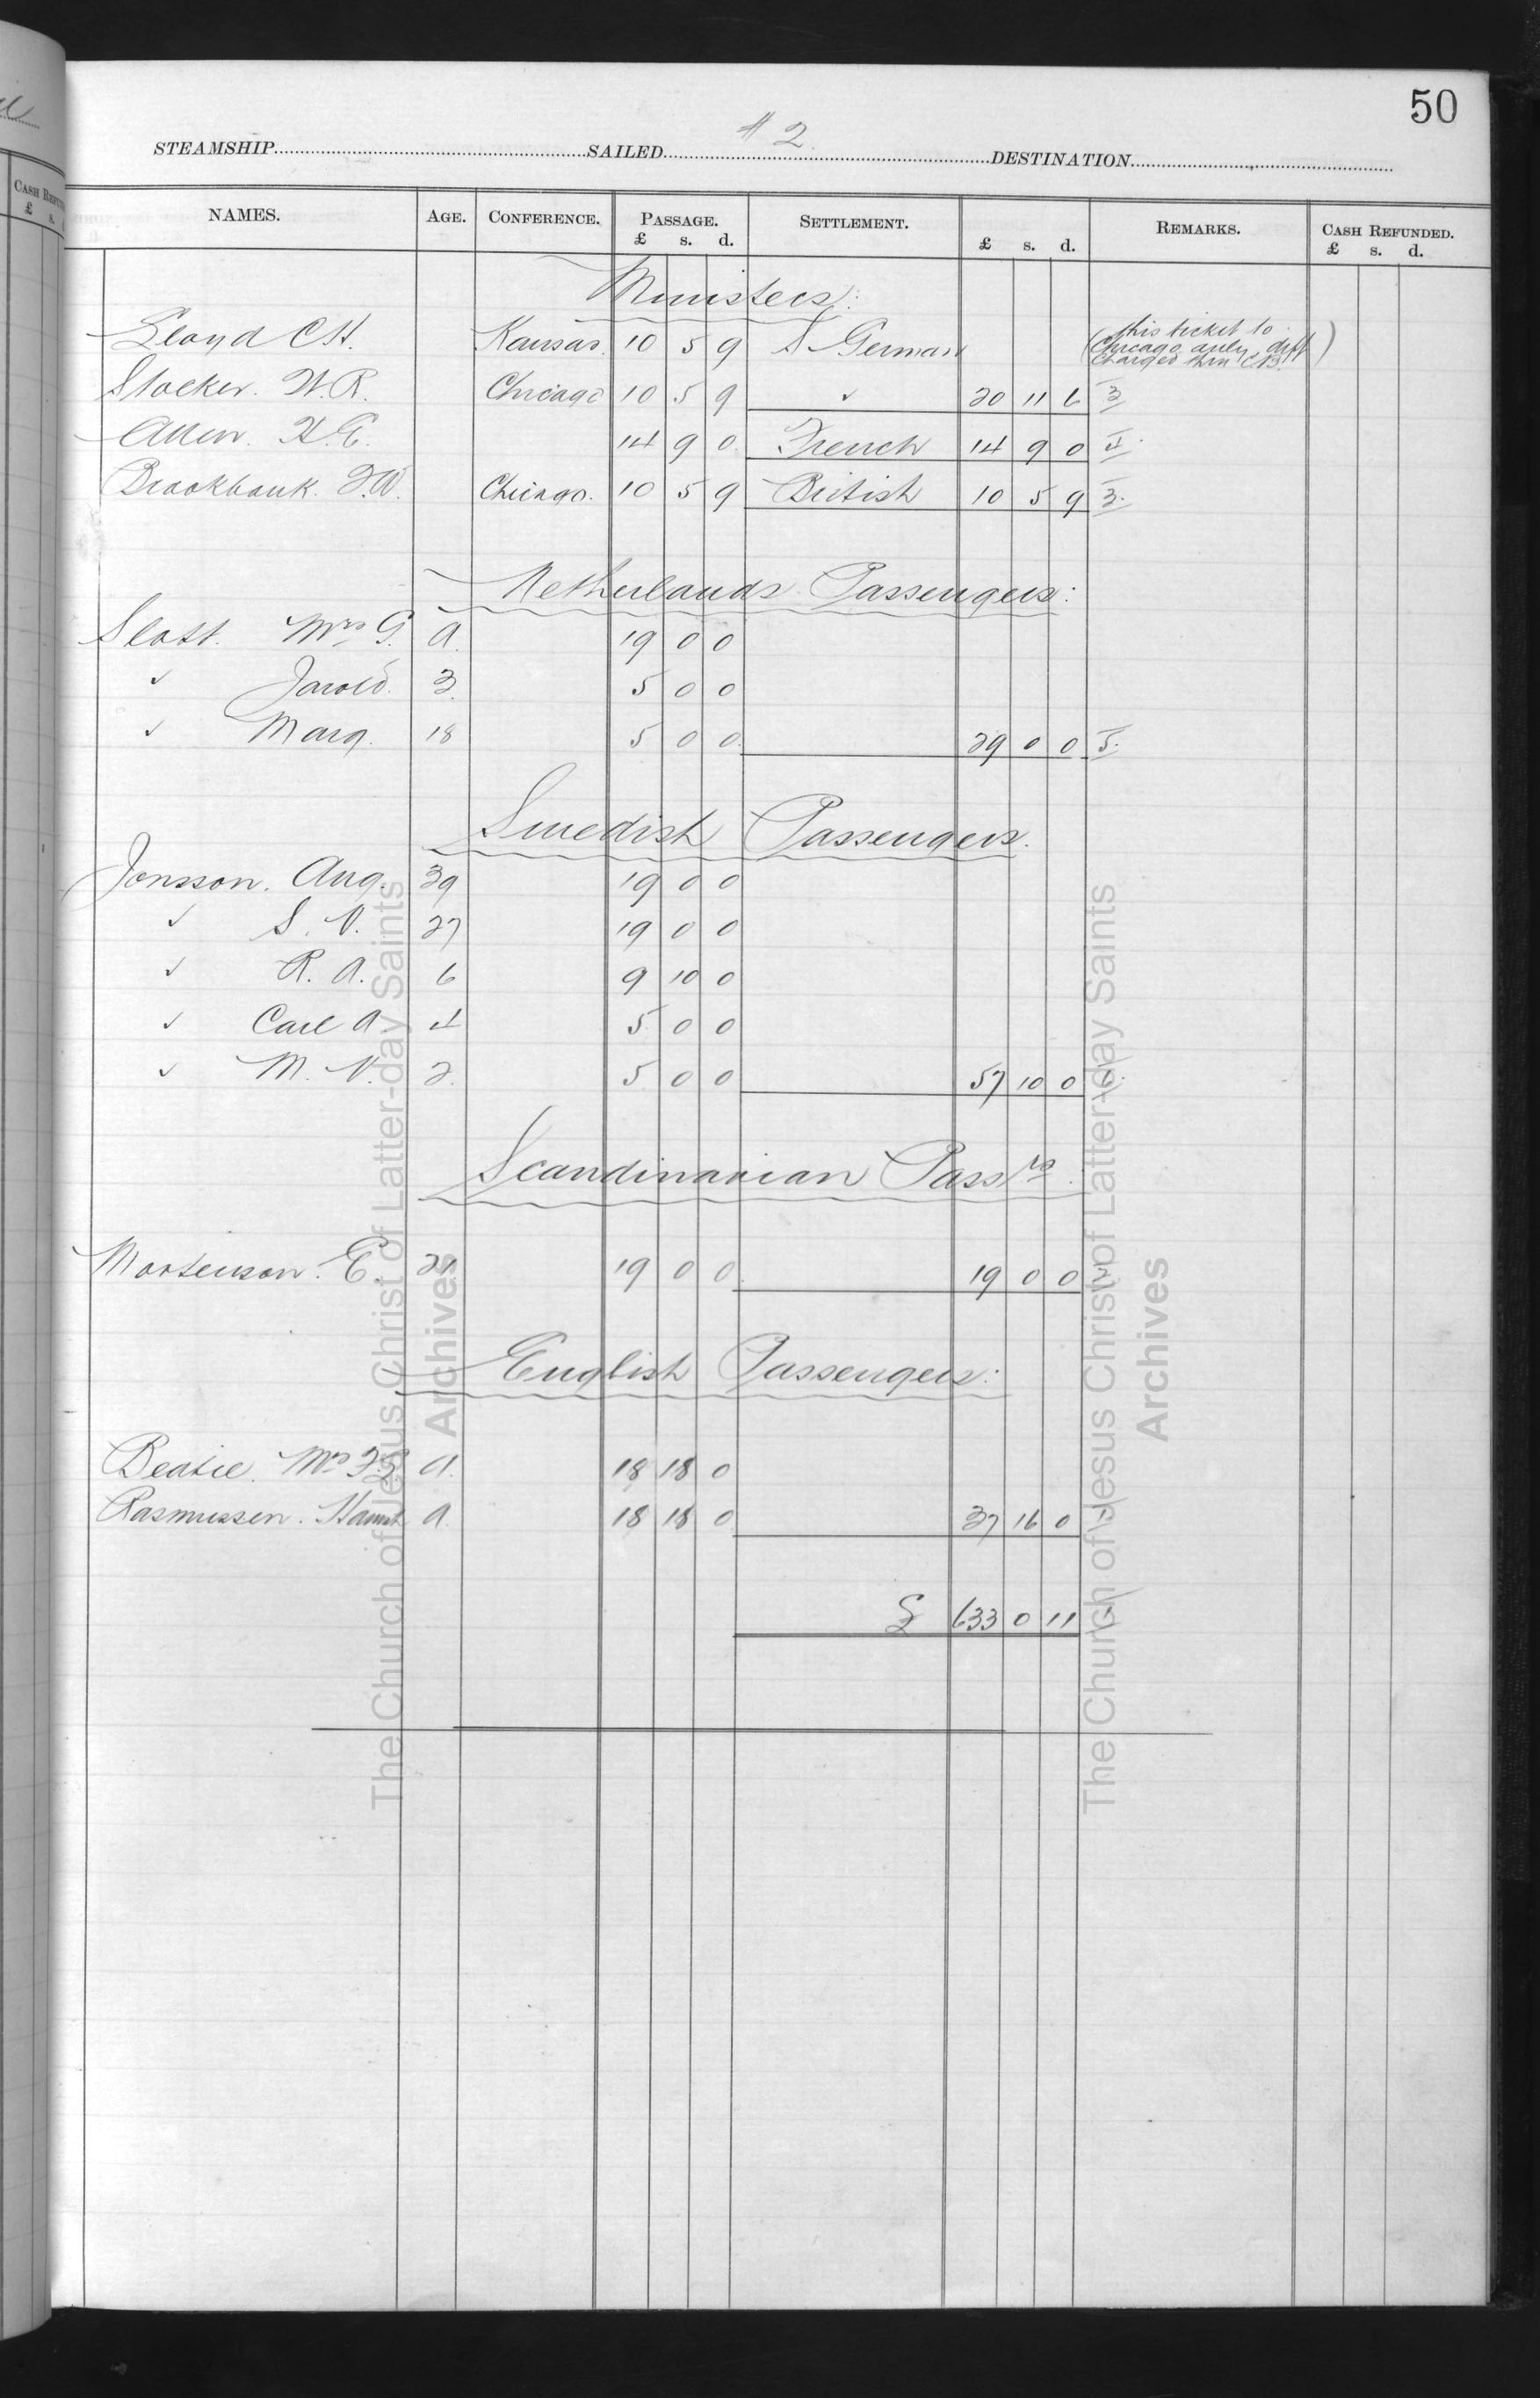 50
# 2
STEAMSHIP SAILED DESTINATION
NAMES. AGE. CONFERENCE. PASSAGE. SETTLEMENT. REMARKS. CASH REFUNDED.
£ s. d. £ s. d. £ s. d.
Ministers:
Lloyd C H. Kansas 10 5 9 S German (this ticket to Chicago only, diff charged thru C.B.)
Stocker. W. R. Chicago 10 5 9 ✓ 20 11 6 3
Allen. H. E. 14 9 0 French 14 9 0 4
Brookbank. T. W. Chicago. 10 5 9 British 10 5 9 3.
Netherlands Passengers:
Slott. Mrs G. A. 19 0 0
✓ Jarold. 3 5 0 0
✓ Marg. 18 5 0 0 29 0 0 5.
Swedish Passengers.
Jonsson. Aug. 39 19 0 0
✓ S. V. 27 19 0 0
✓ R. A. 6 9 10 0
✓ Carl A 4 5 0 0
✓ M. V. 2. 5 0 0 57 10 0
Scandinavian Passrs.
Mortenson. E. 19 0 0 19 0 0
English Passengers:
Beatie. Mrs A. 18 18 0
Rasmussen. A. 18 18 0 37 16 0
£ 633 0 11
The Church of Jesus Christ of Latter-day Saints
Archives
The Church of Jesus Christ of Latter-day Saints
Archives
CASH REFUN
£ s.